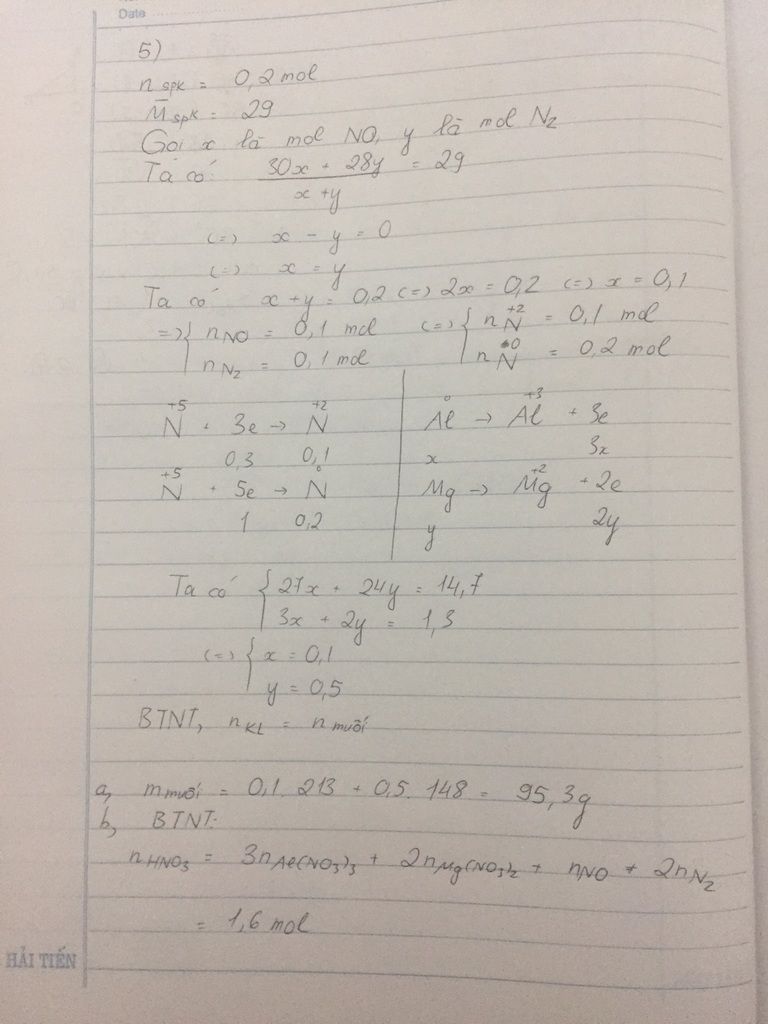 Date
5)
n spk = 0,2 mol
M̄ spk = 29
Gọi x là mol NO, y là mol N2
Ta có: (30x + 28y)/(x + y) = 29
(=) x - y = 0
(=) x = y
Ta có x + y = 0,2 (=) 2x = 0,2 (=) x = 0,1
=) { nNO = 0,1 mol (=) { n N+2 = 0,1 mol
nN2 = 0,1 mol n N0 = 0,2 mol
N+5 + 3e → N+2 | Al0 → Al+3 + 3e
0,3 0,1 x 3x
N+5 + 5e → N0 | Mg → Mg+2 + 2e
1 0,2 y 2y
Ta có { 27x + 24y = 14,7
3x + 2y = 1,3
(=) { x = 0,1
y = 0,5
BTNT, nKL = n muối
a, m muối = 0,1. 213 + 0,5. 148 = 95,3g
b, BTNT:
nHNO3 = 3nAl(NO3)3 + 2nMg(NO3)2 + nNO + 2nN2
= 1,6 mol
HẢI TIẾN